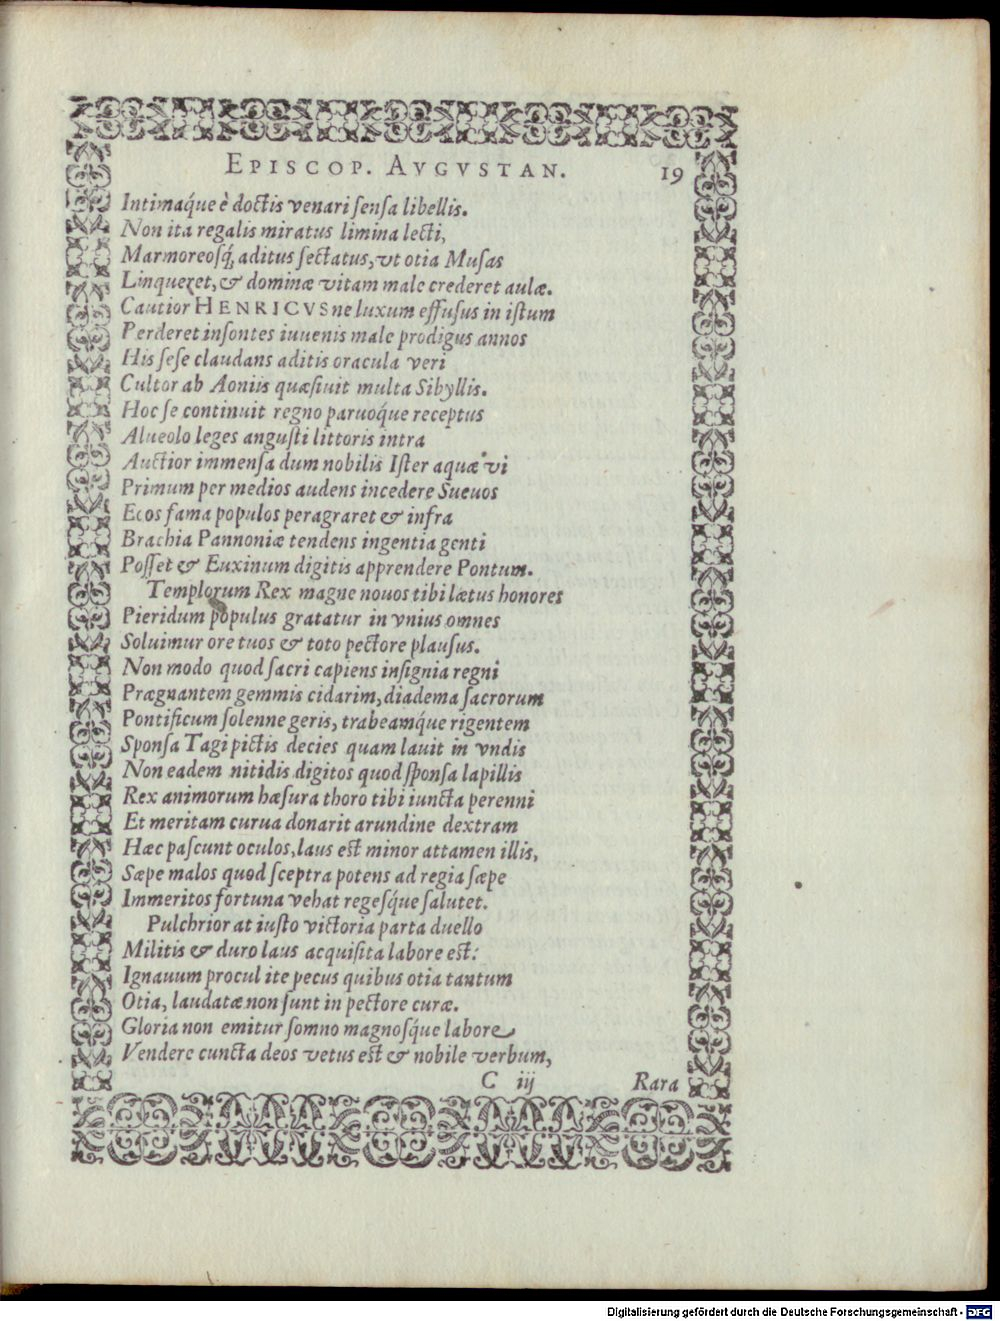 EPISCOP. AVGVSTAN. 19
Intimaq́ue è doctis venari ſenſa libellis.
Non ita regalis miratus limina lecti,
Marmoreoſq́; aditus ſectatus, vt otia Muſas
Linqueret, & dominæ vitam male crederet aulæ.
Cautior HENRICVS ne luxum effuſus in iſtum
Perderet inſontes iuuenis male prodigus annos
His ſeſe claudans aditis oracula veri
Cultor ab Aoniis quæſiuit multa Sibyllis.
Hoc ſe continuit regno paruoq́ue receptus
Alueolo leges anguſti littoris intra
Auctior immenſa dum nobilis Iſter aquæ vi
Primum per medios audens incedere Sueuos
Eoos fama populos peragraret & infra
Brachia Pannoniæ tendens ingentia genti
Poſſet & Euxinum digitis apprendere Pontum.
Templorum Rex magne nouos tibi lætus honores
Pieridum populus gratatur in vnius omnes
Soluimur ore tuos & toto pectore plauſus.
Non modo quod ſacri capiens inſignia regni
Prægnantem gemmis cidarim, diadema ſacrorum
Pontificum ſolenne geris, trabeamq́ue rigentem
Sponſa Tagi pictis decies quam lauit in vndis
Non eadem nitidis digitos quod ſponſa lapillis
Rex animorum hæſura thoro tibi iuncta perenni
Et meritam curua donarit arundine dextram
Hæc paſcunt oculos, laus eſt minor attamen illis,
Sæpe malos quod ſceptra potens ad regia ſæpe
Immeritos fortuna vehat regeſq́ue ſalutet.
Pulchrior at iuſto victoria parta duello
Militis & duro laus acquiſita labore eſt:
Ignauum procul ite pecus quibus otia tantum
Otia, laudatæ non ſunt in pectore curæ.
Gloria non emitur ſomno magnoſq́ue labore
Vendere cuncta deos vetus eſt & nobile verbum,
C iij Rara
Digitalisierung gefördert durch die Deutsche Forschungsgemeinschaft - DFG